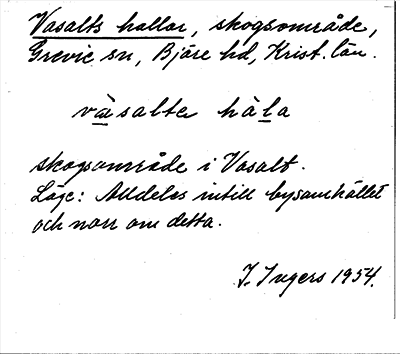 Vasalts hallar, skogsområde,
Grevie sn, Bjäre hd, Krist. län.
vàsaltər hàla
skogsområde i Vasalt.
Läge: Alldeles intill bysamhället
och norr om detta.
I. Ingers 1954.